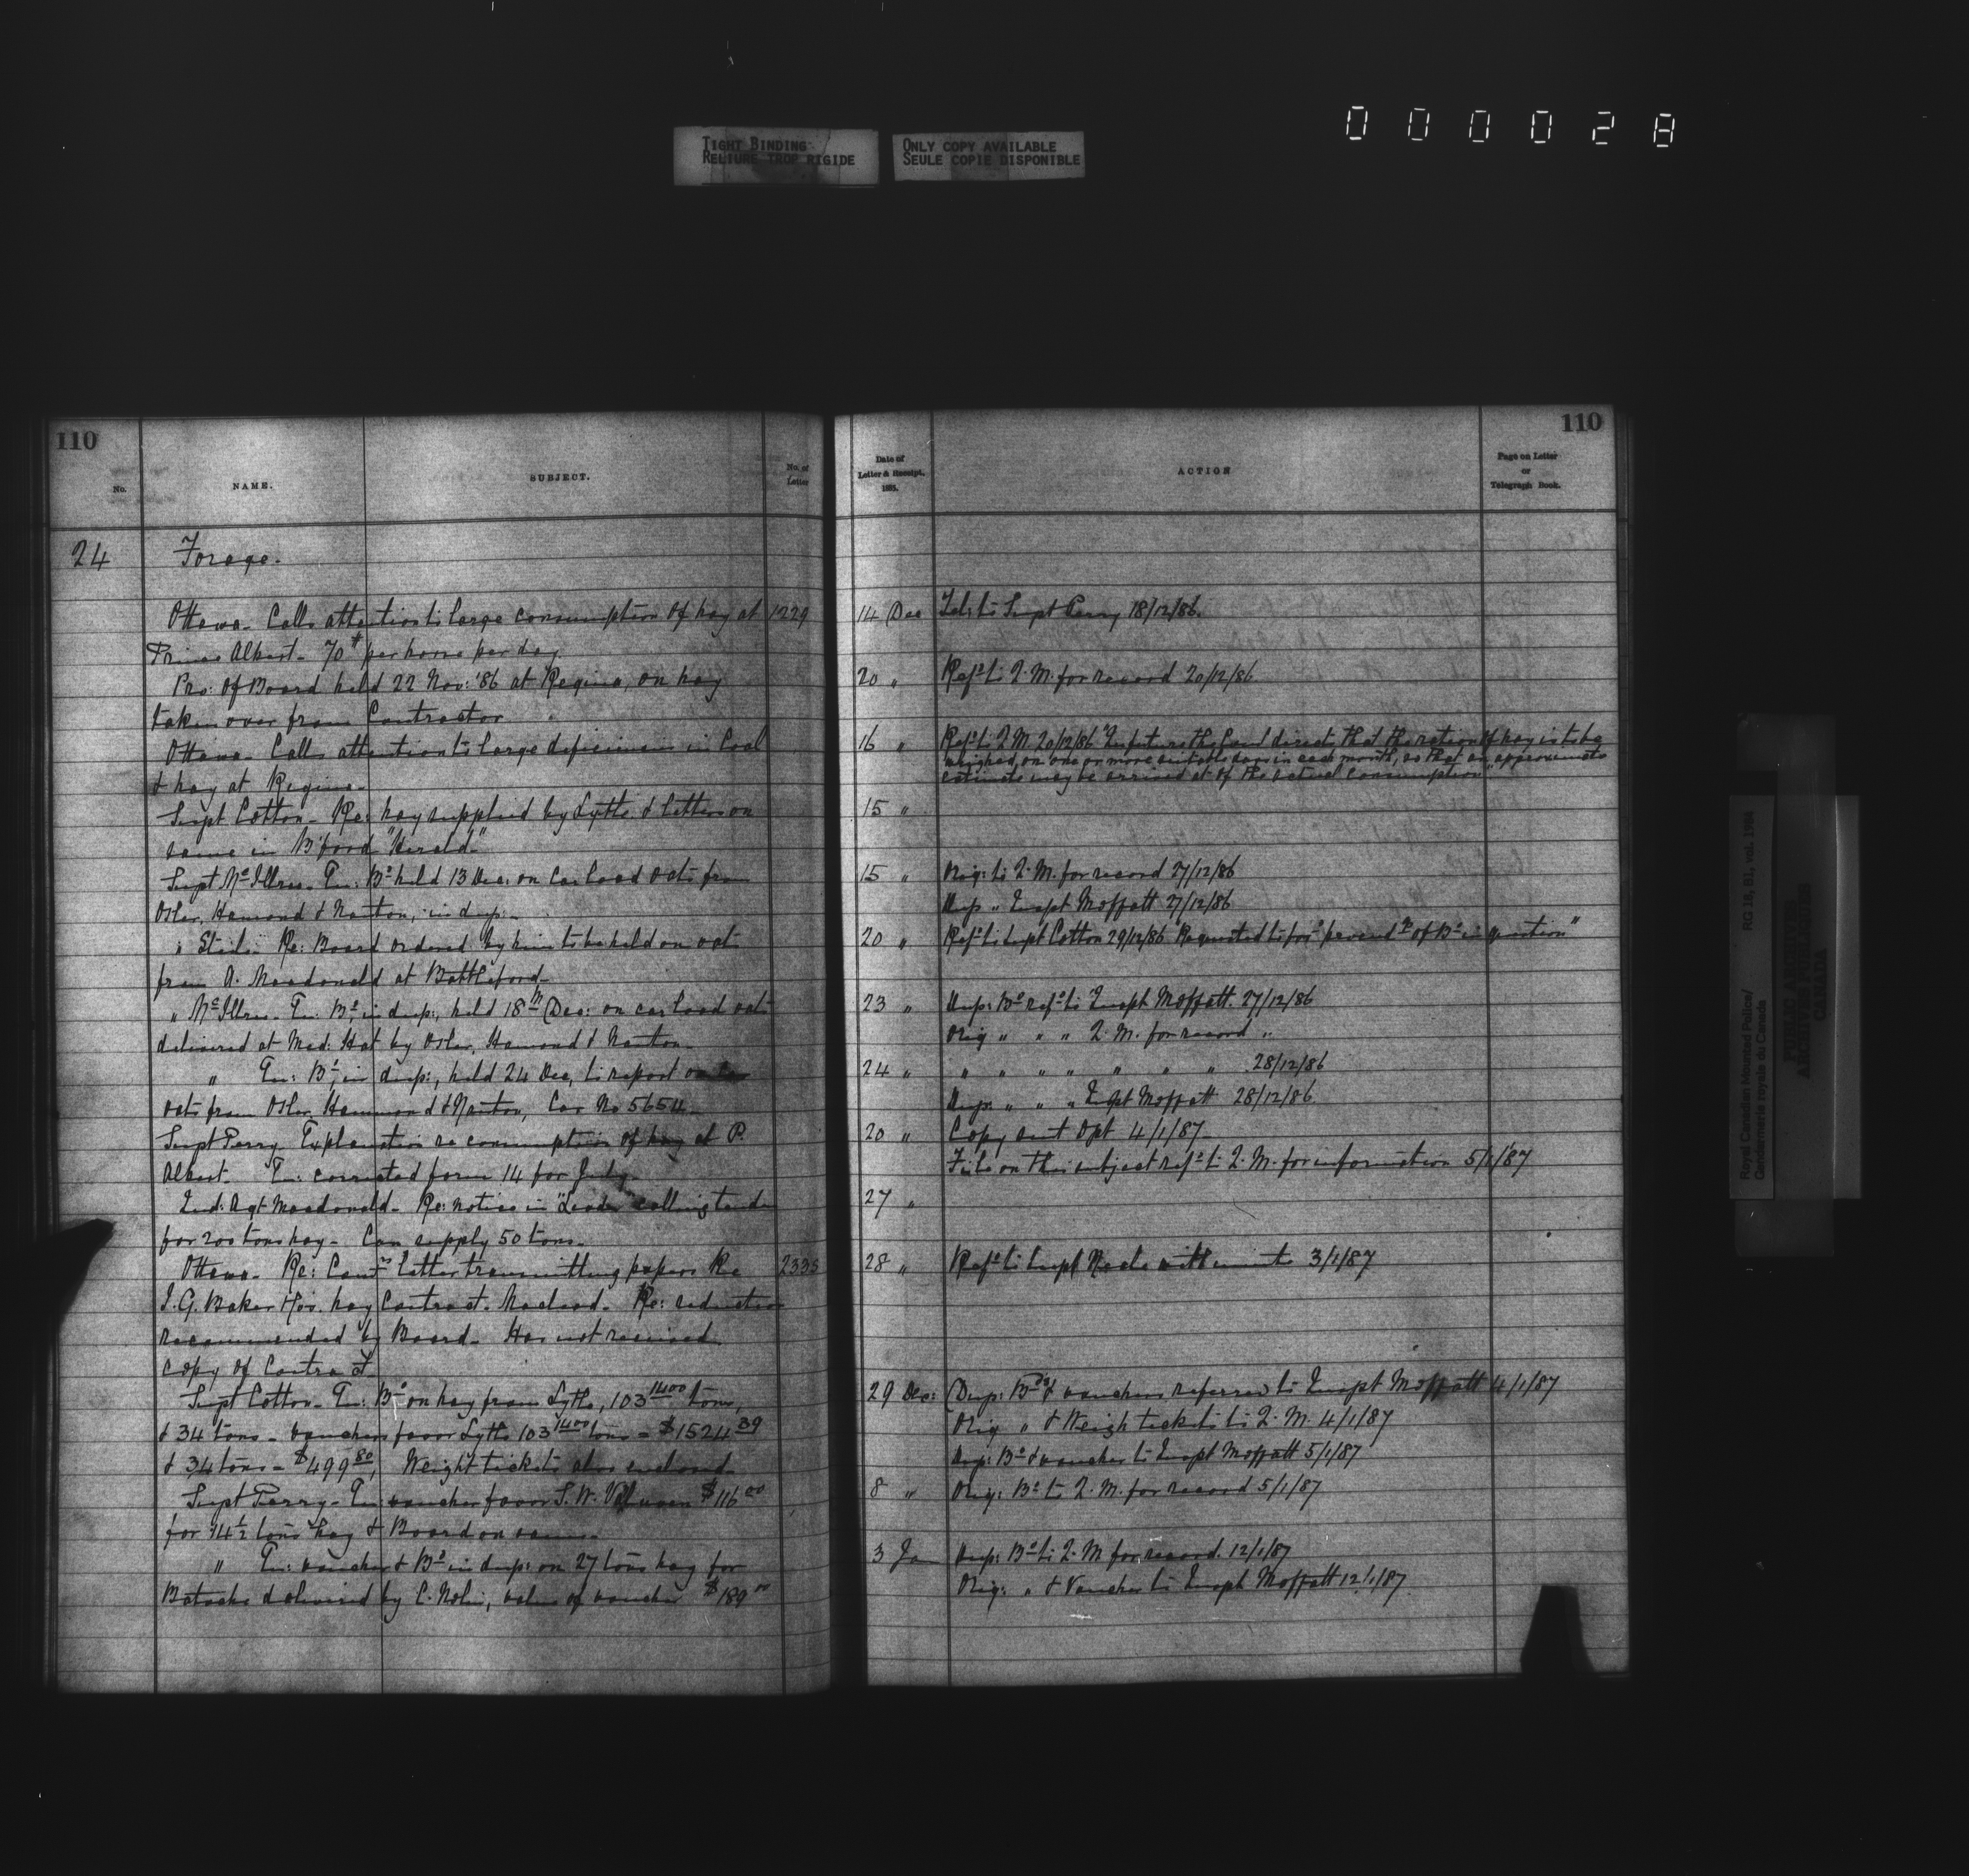 000028
TIGHT BINDING
RELIURE TROP RIGIDE
ONLY COPY AVAILABLE
SEULE COPIE DISPONIBLE
110
No.
NAME.
SUBJECT.
No. of
Letter
24
Forage.
Ottawa - Calls attention to large consumption of hay at 1229
Prince Albert - 70# per horse per day
Pro: of Board held 22 Nov: '86 at Regina, on hay
taken over from Contractor
Ottawa - Calls attention to large deficiencies in Coal
& hay at Regina -
Supt Cotton - Re: hay supplied by Lytle & letter on
same in B'ford "Herald"
Supt McIllree - En: Bd held 13 Dec: on Carload oats from
Osler, Hamond & Nanton, in dup: -
" Steele - Re: Board ordered by him to be held on oats
from A. Macdonald at Battleford -
" McIllree - En: Bd, in dup:, held 18th Dec: on carload oats
delivered at Med: Hat by Osler, Hamond & Nanton -
" En: Bd, in dup:, held 24 Dec, to report on
oats from Osler Hammond & Nanton, Car No 5654 -
Supt Perry Explanation re consumption of hay at P.
Albert - En: corrected form 14 for July -
Ind: Agt Macdonald - Re: notice in "Leader" calling tender
for 200 tons hay - Can supply 50 tons -
Ottawa - Re: Comrs letter transmitting papers Re 2335
I. G. Baker & Co's. hay Contract - Macleod - Re: reduction
recommended by Board - Has not received
copy of Contract
Supt Cotton - En: Bd on hay from Lytle, 103 1400 tons,
& 34 tons - vouchers favor Lytle 103 1400 tons - $1524 39
& 34 tons - $499 80, Weight tickets also enclosed -
Supt Perry - En: voucher favor S. W. $116 00
for 14½ tons hay & Board on same -
" En: voucher & Bd in dup: on 27 tons hay for
Batoche delivered by C. Nolin, value of voucher $189 00
110
Date of
Letter & Receipt.
1885.
ACTION
Page on Letter
or
Telegraph Book.
14 Dec Tel: to Supt Perry 18/12/86.
20 " Refd to Q. M. for record 20/12/86
16 " Refd to Q. M. 20/12/86 "In future the directs that the ration of hay is to be
weighed, on one or more suitable days in each month, so that an approximate
estimate may be arrived at of the actual consumption"
15 "
15 " Orig: to Q. M. for record 27/12/86
Dup " Inspt Moffatt 27/12/86
20 " Refd to Supt Cotton 29/12/86 "Requested to for'd of Bd in question"
23 " Dup: Bd refd to Inspt Moffatt 27/12/86
Orig " " " Q. M. for record "
24 " " " " " " " " 28/12/86
Dup: " " " Inspt Moffatt 28/12/86
20 " Copy sent Dpt 4/1/87 -
File on this subject refd to Q. M. for information 5/1/87
27 "
28 " Refd to Supt Neale with minute 3/1/87
29 Dec: Dup: Bds & vouchers referred to Inspt Moffatt 4/1/87
Orig " & Weigh tickets to Q. M. 4/1/87
Dup: Bd & voucher to Inspt Moffatt 5/1/87
8 " Orig: Bd to Q. M. for record 5/1/87
3 Jan Dup: Bd to Q. M for record. 12/1/87
Orig: " & Voucher to Inspt Moffatt 12/1/87
Royal Canadian Mounted Police/
Gendarmerie royale du Canada
RG 18, B1, vol. 1984
PUBLIC ARCHIVES
ARCHIVES PUBLIQUES
CANADA